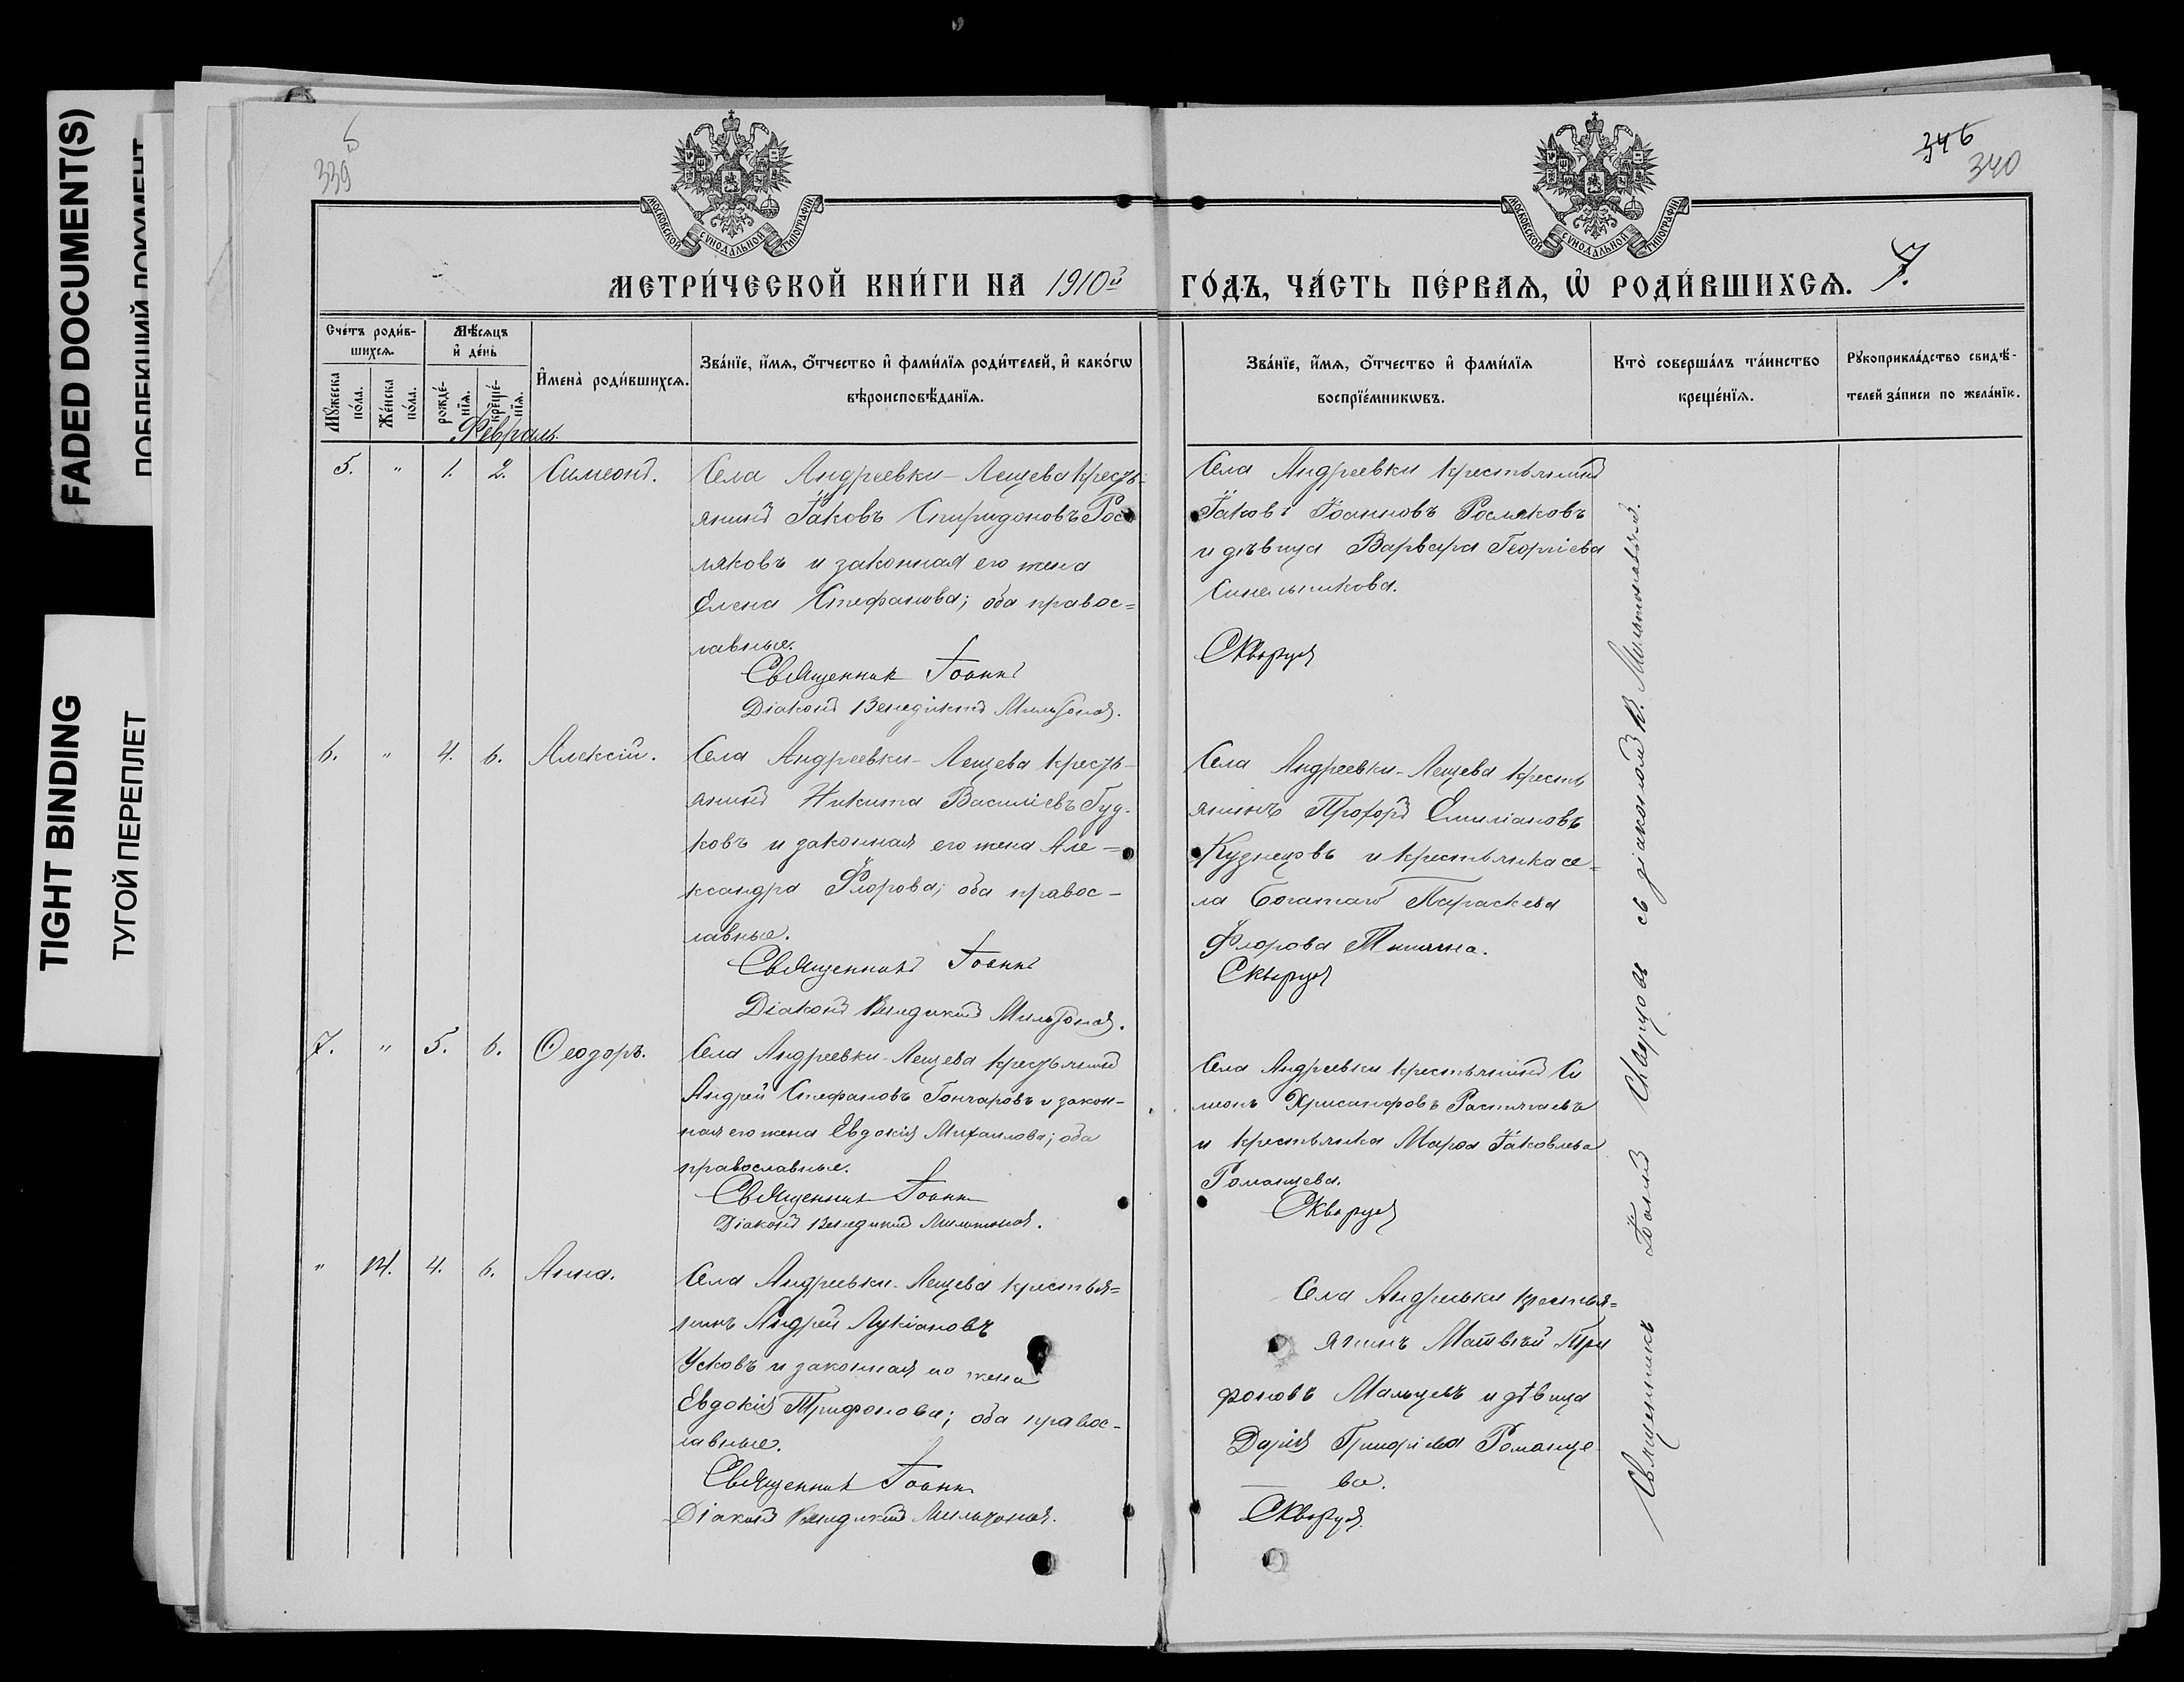 FADED DOCUMENT(S)
TIGHT BINDING
ТУГОЙ ПЕРЕПЛЕТ
339
346
340
МОСКОВСКОЙ СѴНОДАЛЬНОЙ ТИПОГРАФІИ
МОСКОВСКОЙ СѴНОДАЛЬНОЙ ТИПОГРАФІИ
МЕТРИ́ЧЕСКОЙ КНИ́ГИ НА 1910й
ГО́ДЪ, ЧА́СТЬ ПЕ́РВАѦ, Ѡ҆ РОДИ́ВШИХСѦ. 7.
Сче́тъ роди́в-
шихсѧ.
Мꙋ́жеска
по́ла.
Же́нска
по́ла.
Мѣ́сѧцъ
и҆ де́нь
рожде́-
нїѧ.
креще́-
нїѧ.
И҆мена̀ роди́вшихсѧ.
Зва́нїе, и҆́мѧ, ѻ҆́тчество и҆ фами́лїѧ роди́телей, и҆ како́гѡ
вѣроисповѣ́данїѧ.
Зва́нїе, и҆́мѧ, ѻ҆́тчество и҆ фами́лїѧ
воспрїе́мникѡвъ.
Кто̀ соверша́лъ та́инство
креще́нїѧ.
Рꙋкоприкла́дство свидѣ́-
телей за́писи по жела́нїю.
Февраль.
5. " 1. 2. Симеонъ.
Села Андреевки-Лещева кресть-
янинъ Іаковъ Спиридоновъ Рос
ляковъ и законная его жена
Елена Стефанова; оба правос=
лавные.
Священник Іоаннъ
Діаконъ Венедиктъ Мильтоновъ.
Села Андреевки крестьянинъ
Іаковъ Іоанновъ Росляковъ
и дѣвица Варвара Георгіева
Синельникова.
Скворцовъ
6. " 4. 6. Алексій.
Села Андреевки-Лещева кресть-
янинъ Никита Василіевъ Гуд-
ковъ и законная его жена Але=
ксандра Флорова; оба правос-
лавные.
Священникъ Іоаннъ
Діаконъ Венедиктъ Мильтоновъ.
Села Андреевки-Лещева кресть
янинъ Прохоръ Емиліановъ
Кузнецовъ и крестьянка се-
ла Богатаго Параскева
Флорова
Скворцовъ
7. " 5. 6. Ѳеодоръ.
Села Андреевки-Лещева крестьянинъ
Андрей Стефановъ Гончаровъ и закон-
ная его жена Евдокія Михаилова; оба
православные.
Священник Іоанн
Діаконъ Венедиктъ Мильтоновъ.
Села Андреевки крестьянинъ Си
меонъ Хрисанфовъ
и крестьянка Марѳа Іаковлева
Романцева.
Скворцовъ
" 14. 4. 6. Анна.
Села Андреевки-Лещева крестья=
нинъ Андрей Лукіановъ
Усковъ и законная его жена
Евдокія Трифонова; оба правос-
лавные.
Священник Іоанн
Діаконъ Венедиктъ Мильтоновъ.
Села Андреевки крестья=
янинъ Матвѣй Три
фоновъ Мальцевъ и дѣвица
Дарія Григоріева Романце
ва.
Скворцовъ
Священникъ Іоаннъ Скворцовъ съ діакономъ В. Мильтоновымъ.